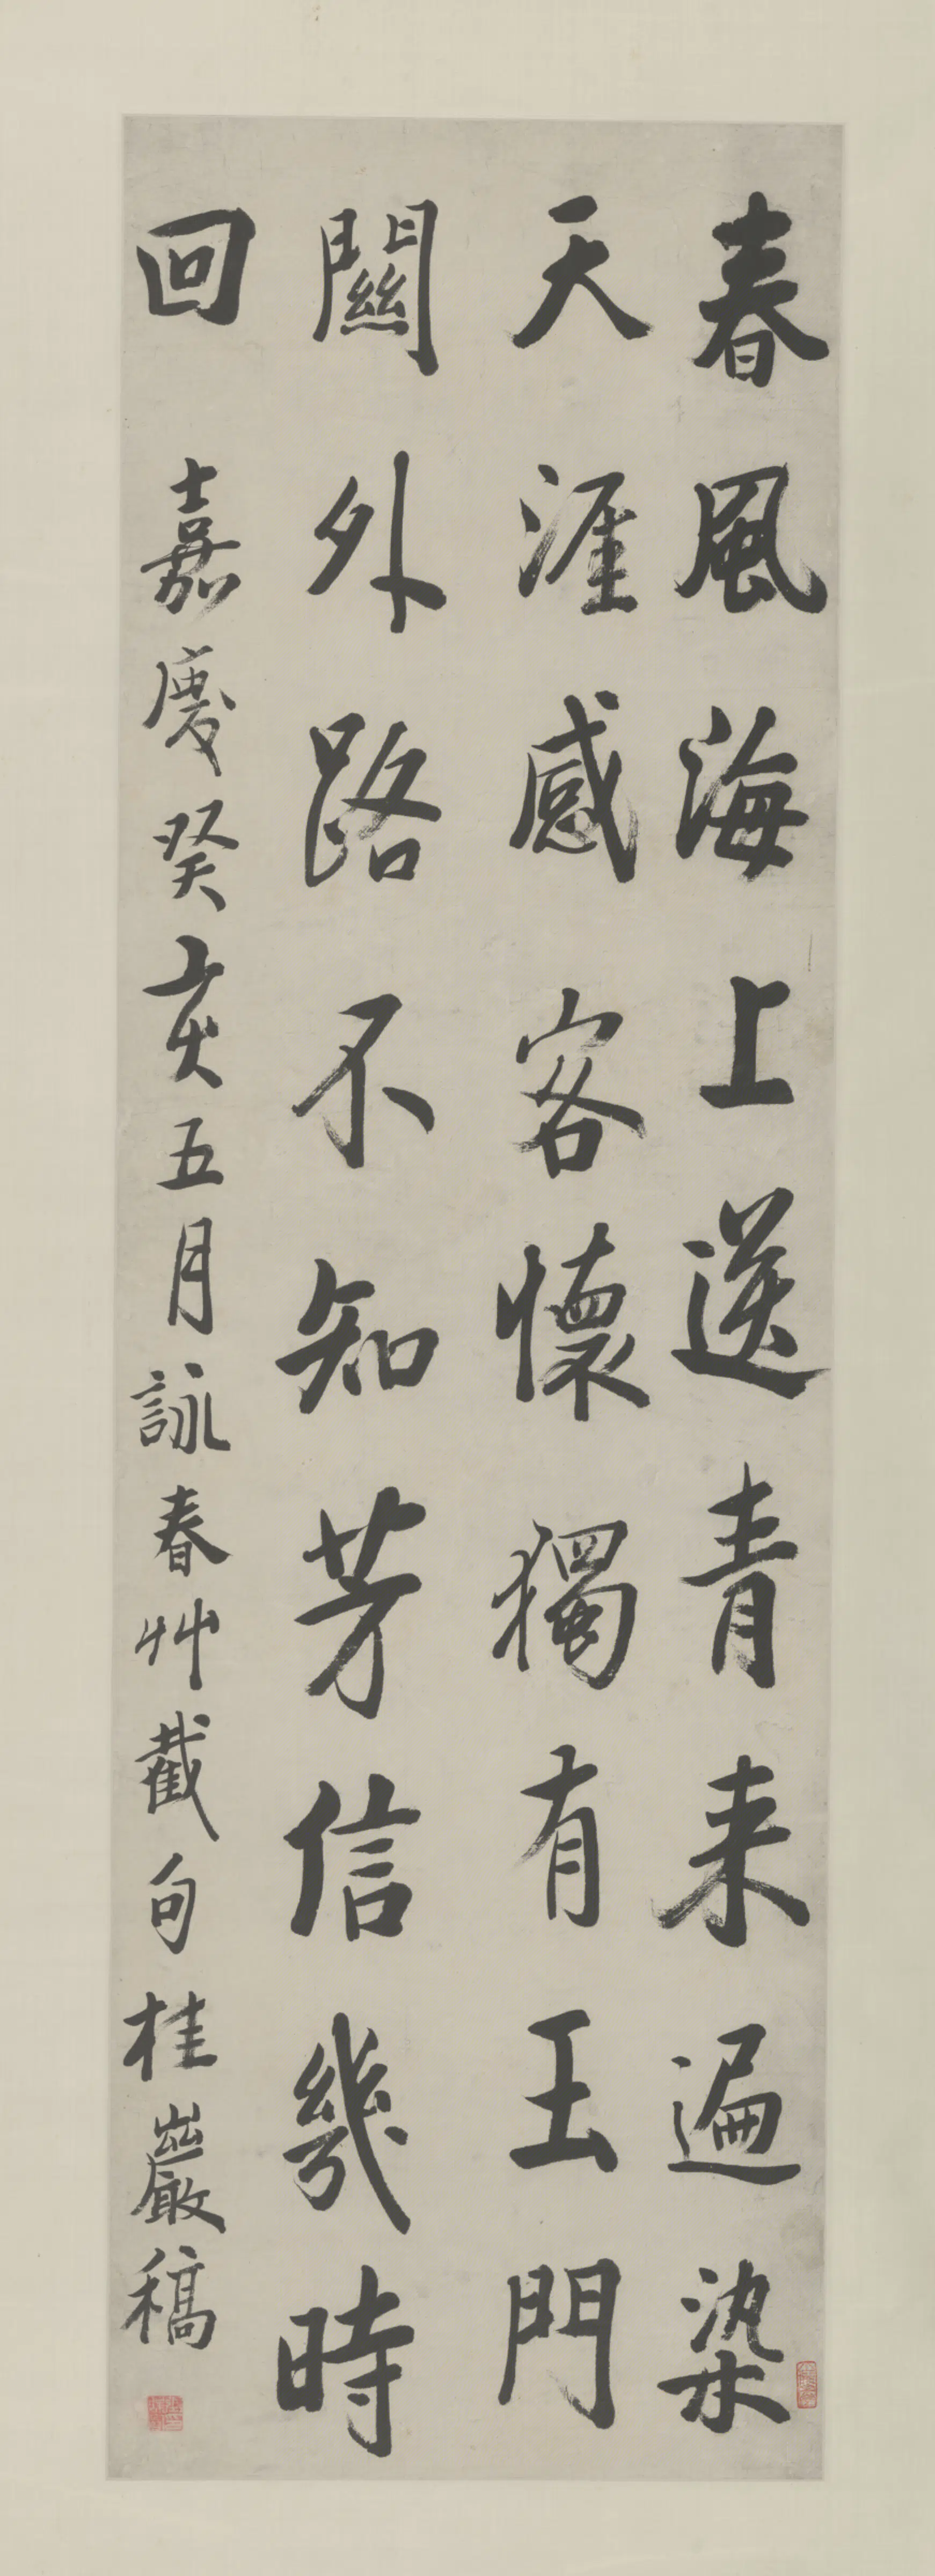 春風海上送青来遍染
天涯感客懷獨有王門
關外路不知芳信幾時
回 嘉慶癸亥五月詠春艸截句桂巖稿